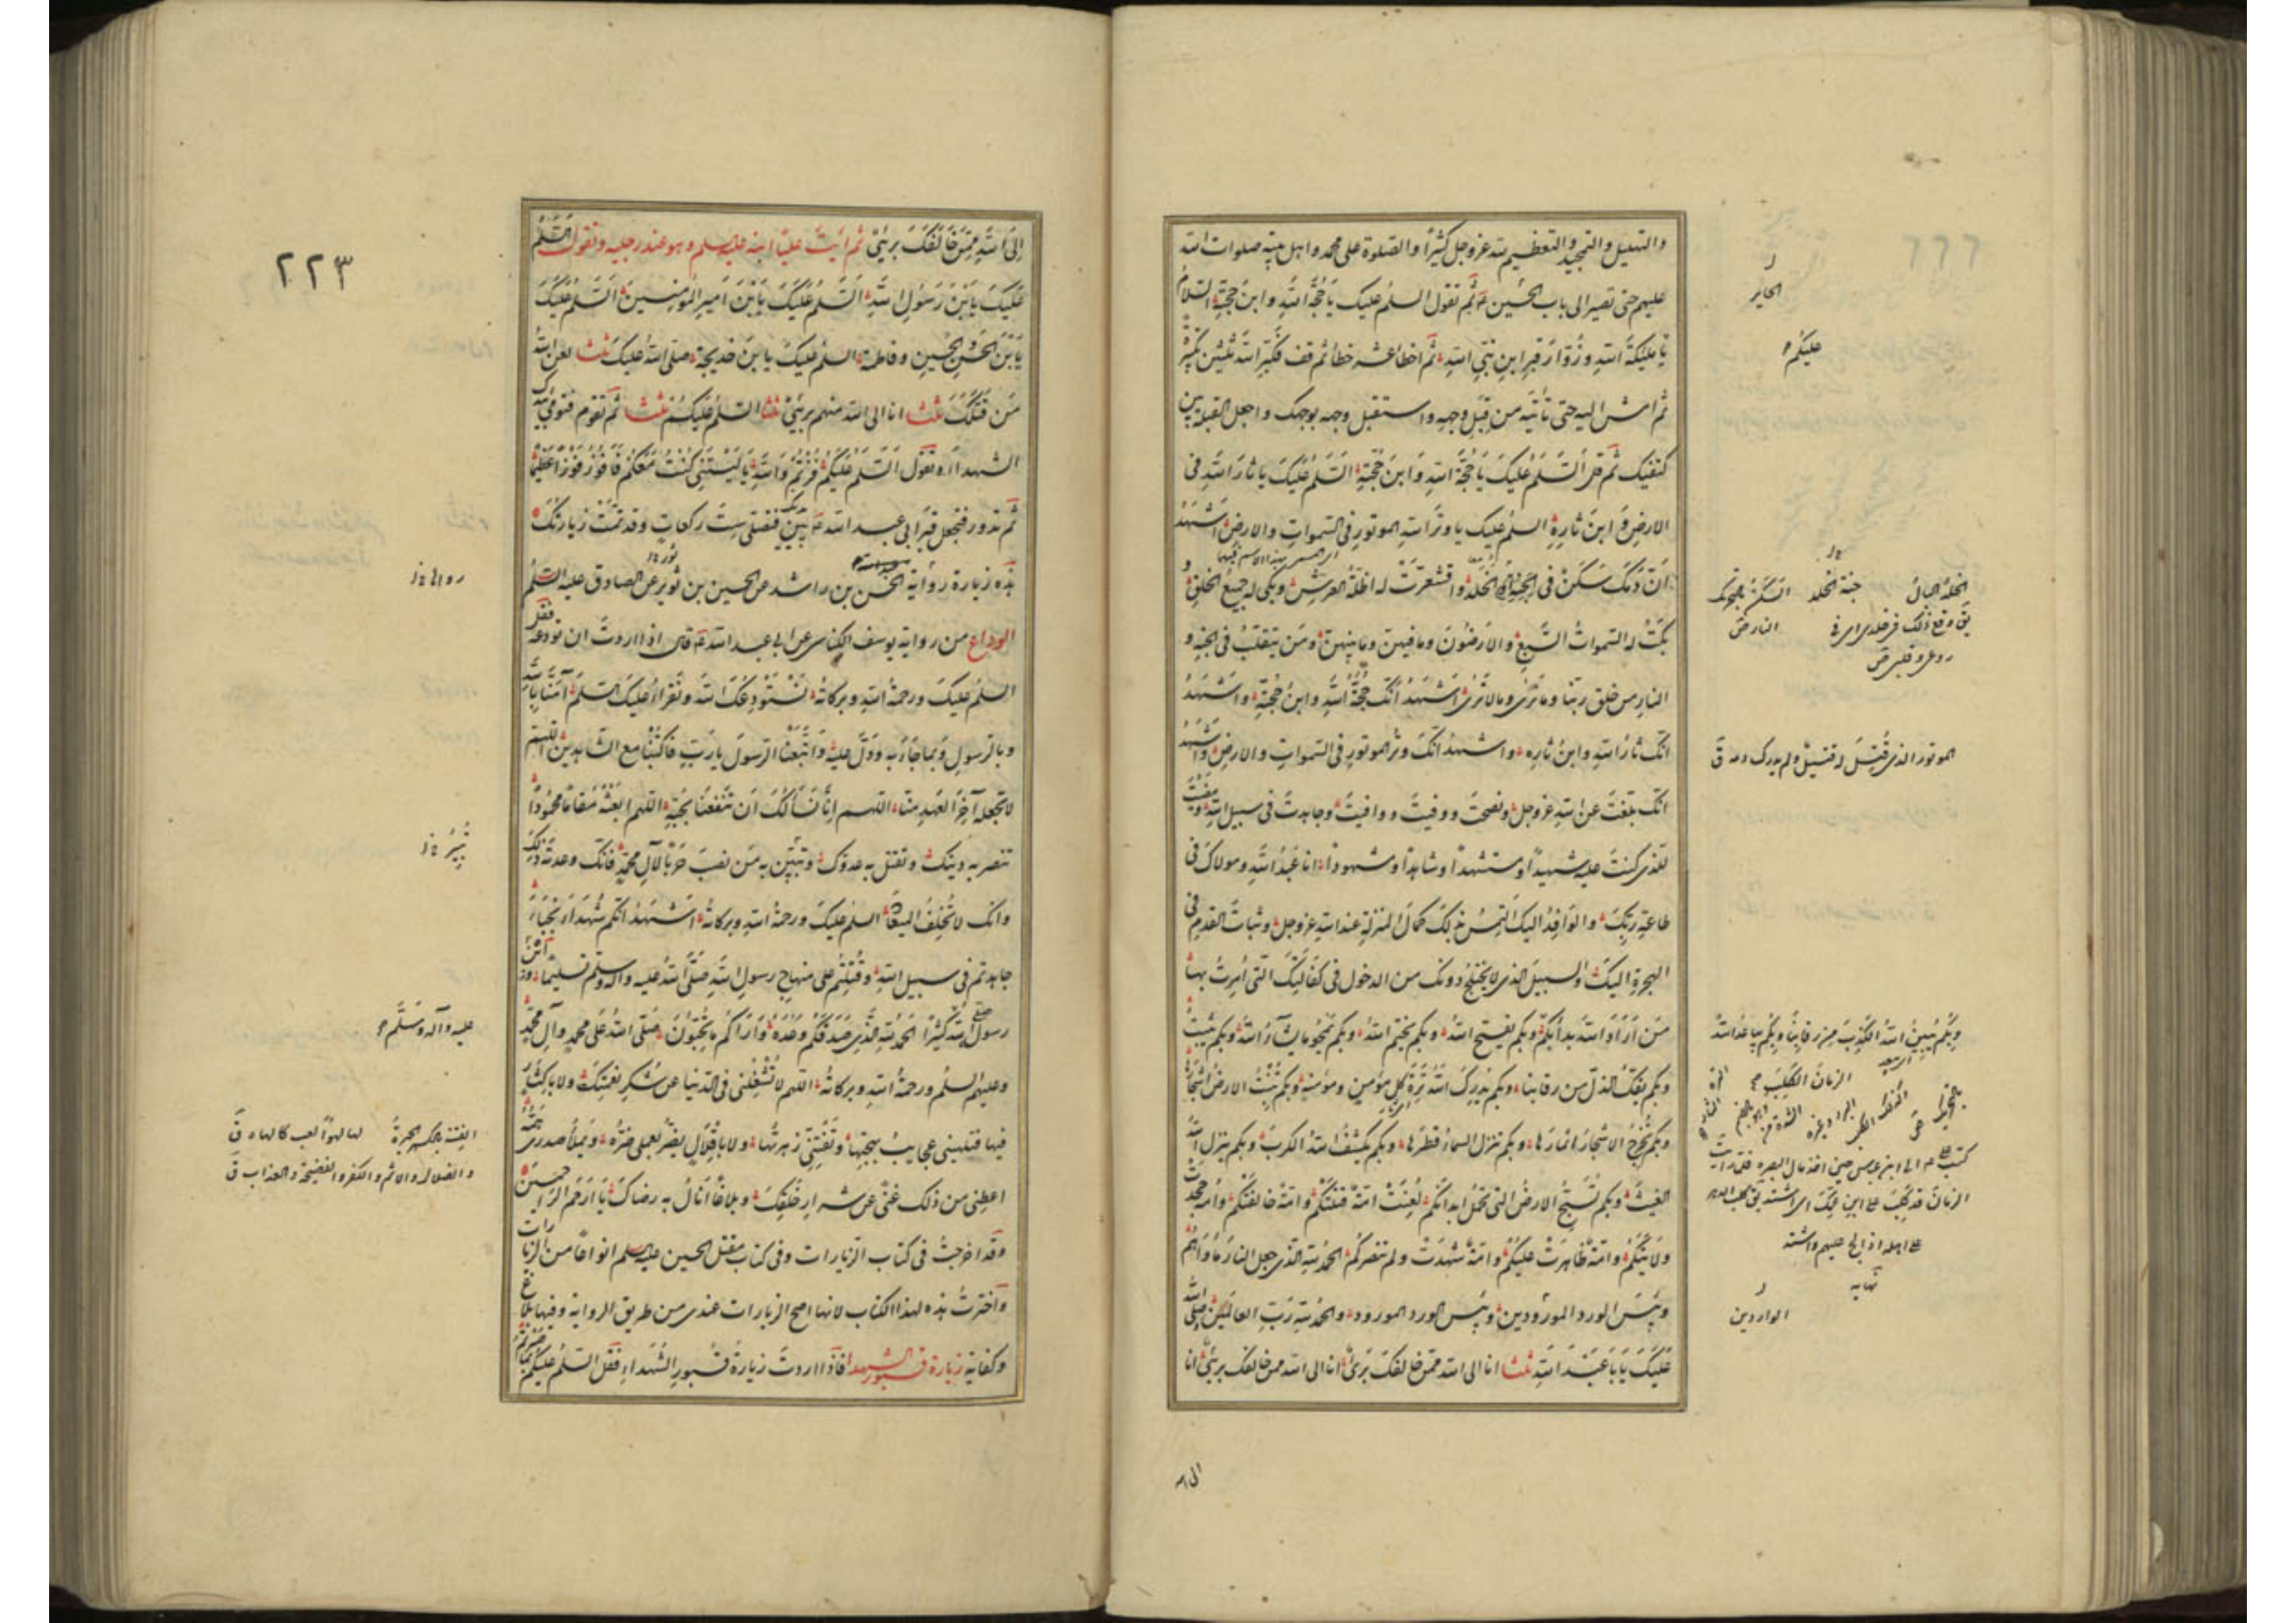 والتهليل والتمجيد والتعظيم لله عز وجل كثيرًا والصلوة على محمد واهل بيته صلوات الله
عليهم حتى تصير الى باب الحسين ع ثم تقول السلم عليك يا حُجَّةَ اللهِ وابنَ حجّتِهِ السّلامُ
يا ملئكةَ اللهِ وزُوّارَ قبرِ ابنِ نبيِّ اللهِ ثم اخطُ عشر خطًا ثم قف فكبّرِ اللهَ ثلثين تكبيرة
ثم امش اليه حتى تأتيَه من قِبَلِ وجهِهِ واستقبل وجهه بوجهك واجعل القبلة بين
كتفيك ثم قل اَلسَّلمُ عَلَيكَ يا حُجّةَ اللهِ وَابنَ حُجّتِهِ السَّلمُ عَلَيكَ يا ثارَ اللهِ في
الارضِ وَابنَ ثارِهِ السلمُ عليك يا وترَ اللهِ الموتورَ في السّمواتِ والارضِ اشهدُ
اَنّ دَمَكَ سَكَنَ في الخُلدِ واقشعرّت له اظلّةُ العرشِ وبكى له جميعُ الخلقِ و
بكَتْ له السّمواتُ السَّبعُ والارَضُونَ وما فيهنّ وما بينهنّ ومَن يتقلّبُ في الجنّةِ و
النارِ من خلق ربّنا وما يُرى وما لا يُرى اشهدُ انّكَ حُجّةُ اللهِ وابنُ حُجّتِهِ واشهدُ
انّك ثارُ اللهِ وابنُ ثارِهِ واشهدُ انّكَ وترُ اللهِ الموتورُ في السّمواتِ والارضِ واشهدُ
انّك بلّغتَ عن اللهِ عز وجل ونصحتَ ووفيتَ ووافيتَ وجاهدتَ في سبيلِ اللهِ ومضيتَ
للّذي كنتَ عليه شهيدًا ومستشهدًا وشاهدًا ومشهودًا انا عَبدُ اللهِ ومولاكَ في
طاعتِكَ والوافِدُ اليك التمسُ بذلك كمالَ المنزلةِ عند اللهِ عز وجل وثباتَ القدمِ في
الهجرةِ اليكَ والسبيلَ الذي لا يختلجُ دونك من الدخولِ في كفالتِكَ الّتي اُمِرتَ بها
مَن اَرادَ اللهَ بدأ بكم وبكم يفتح اللهُ وبكم يختم اللهُ وبكم يمحو ما يشآءُ اللهُ وبكم يثبتُ
وبكم يفكّ الذلّ من رقابنا وبكم يُدرِكُ اللهُ تِرةَ كلِّ مؤمنٍ ومؤمنةٍ وبكم تُنبتُ الارضُ اشجارها
وبكم تُخرِجُ الاشجارُ اثمارَها وبكم تنزل السماءُ قطرَها وبكم يكشفُ اللهُ الكربَ وبكم ينزل اللهُ
الغيثَ وبكم تُسبّحُ الارضُ التي تحمل ابدانَكم لُعِنَتْ امّةٌ قتلتكم وامّةٌ خالفتكم وامّةٌ جحدت
ولايتَكُم وامّةٌ ظاهرَتْ عليكُم وامّةٌ شهدَتْ ولم تنصركم الحمدُ للهِ الّذي جعل النارَ مأواهُم
وبئسَ الورد المورودين وبئس الورد المورود والحمدُ للهِ ربِّ العالمين صلّى اللهُ
عَلَيكَ يا با عَبدِ اللهِ ثلثا انا الى الله ممّن خالفكَ بَرئٌ انا الى الله ممن خالفك برئٌ انا
الى الله
ر
الحاير
عليكُم
الخلد البال جنة الخلد السكن
يق وقع ذلك في خلدي اي في النار ص
روعي وقلبي ص
الموتور الذي قُتِلَ له قتيلٌ ولم يدرك دمه ق
وبِكُم يُبيّنُ اللهُ الكذِبَ وبكم يباعدُ اللهُ
الزمانَ الكَلِبَ
كتب على ع الى ابن عباس حين اخذ مال البصرة فلما رايت
الزمان قد كلب على ابن عمك اي اشتد يق كلب الدهر
على اهله اذا الح عليهم واشتد
نهايه
ر
الواردين
٢٢٣
اِلَى اللهِ مِمَّن خَالَفَكَ بَرِئٌ ثم ايتِ عليًّا ابنه عليه السلم وهو عند رجليه وتقول السّلمُ
عَلَيكَ يَابنَ رَسُولِ اللهِ اَلسَّلمُ عَلَيكَ يَابنَ اَميرِ المُؤمنينَ اَلسَّلمُ عَلَيكَ
يَابنَ الحَسَنِ والحُسينِ وفاطمةَ السلمُ عليكَ يابنَ خديجةَ صلّى اللهُ عليكَ ثلثا لعن اللهُ
مَن قتلكَ ثلثا انا الى الله منهم برئٌ ثلثا السّلمُ عَلَيكُم ثلثا ثم تقوم فتومئ بيدك
الى الشهداء وتقول اَلسَّلمُ عَلَيكُم فُزتُم وَاللهِ يا لَيتَني كنتُ مَعَكُم فَاَفُوزَ فَوزًا عَظيمًا
ثم تدور فتجعل قبرَ ابي عبد الله ع بين يديك فتصلّي ستّ ركعاتٍ وقد تمّت زيارتك
هذه زيارة رواية الحسن بن راشد عن الحسين بن ثوير عن الصادق عليه السّلمُ
الوداع من رواية يوسف الكناسي عن ابي عبد الله ع قال اذا اردتَ ان تودعه فقل
السلمُ عليكَ ورحمةُ اللهِ وبركاتُهُ نَستودِعُكَ اللهَ ونَقرأُ عليكَ السّلمَ آمنّا باللهِ
وبالرسولِ وبما جاءَ به ودلَّ عليه واتّبعنا الرسولَ يا ربِّ فاكتبنا مع الشّاهدينَ اللهم
لا تجعله آخرَ العهدِ منّا اللهم اِنّا نسألكَ اَن تنفعنا بحبّهِ اللهم ابعثْهُ مقامًا محمودًا
تنصر به دينك وتقتل به عدوّكَ وتبير به من نصب حَربًا لآلِ محمدٍ فانّك وعدتَه ذلك
وانّك لا تُخلِفُ الميعادَ السلمُ عليكَ ورحمةُ اللهِ وبركاتُهُ اشهدُ انّكم شُهداءُ نُجباءُ
جاهدتم في سبيلِ اللهِ وقُتِلتُم على منهاجِ رسولِ اللهِ صلّى اللهُ عليه وآله وسلّم تسليمًا وابن
رسولِ اللهِ كثيرًا الحمدُ للهِ الّذي صدقَكُم وعدَهُ واَراكُم ما تُحبّونَ صلّى اللهُ على محمدٍ وآلِ محمّدٍ
وعليهم السلمُ ورحمةُ اللهِ وبركاتُهُ اللهم لا تُشغِلني في الدّنيا عن شُكرِ نعمتِكَ ولا باكثارٍ
فيها فتلهيني عجايبُ بهجتِها وتفتنني زهرتُها ولا باقلالٍ يضرّ بعملي ضرّهُ ويملأ صدري همُّهُ
اعطني من ذلك غنًى عن شرارِ خلقِكَ وبلاغًا اَنالُ به رضاكَ يا ارحمَ الرّاحمين
وقد اخرجتُ في كتاب الزيارات وفي كتاب مقتل الحسين عليه السلم انواعًا من الزيارات
واخترتُ هذه لهذا الكتاب لانها اصح الزيارات عندي من طريق الرواية وفيها بلاغ
وكفاية زيارة قبور الشهدا فاذا اردتَ زيارةَ قبورِ الشّهداءِ فقل السّلمُ عليكُم بما صبرتم
عليه وآله وسَلَّم
الفتنة الحيرةُ لها لهوًا لعب كالهاه ق
والضلال والاثم والكفر والفضيحة والعذاب ق